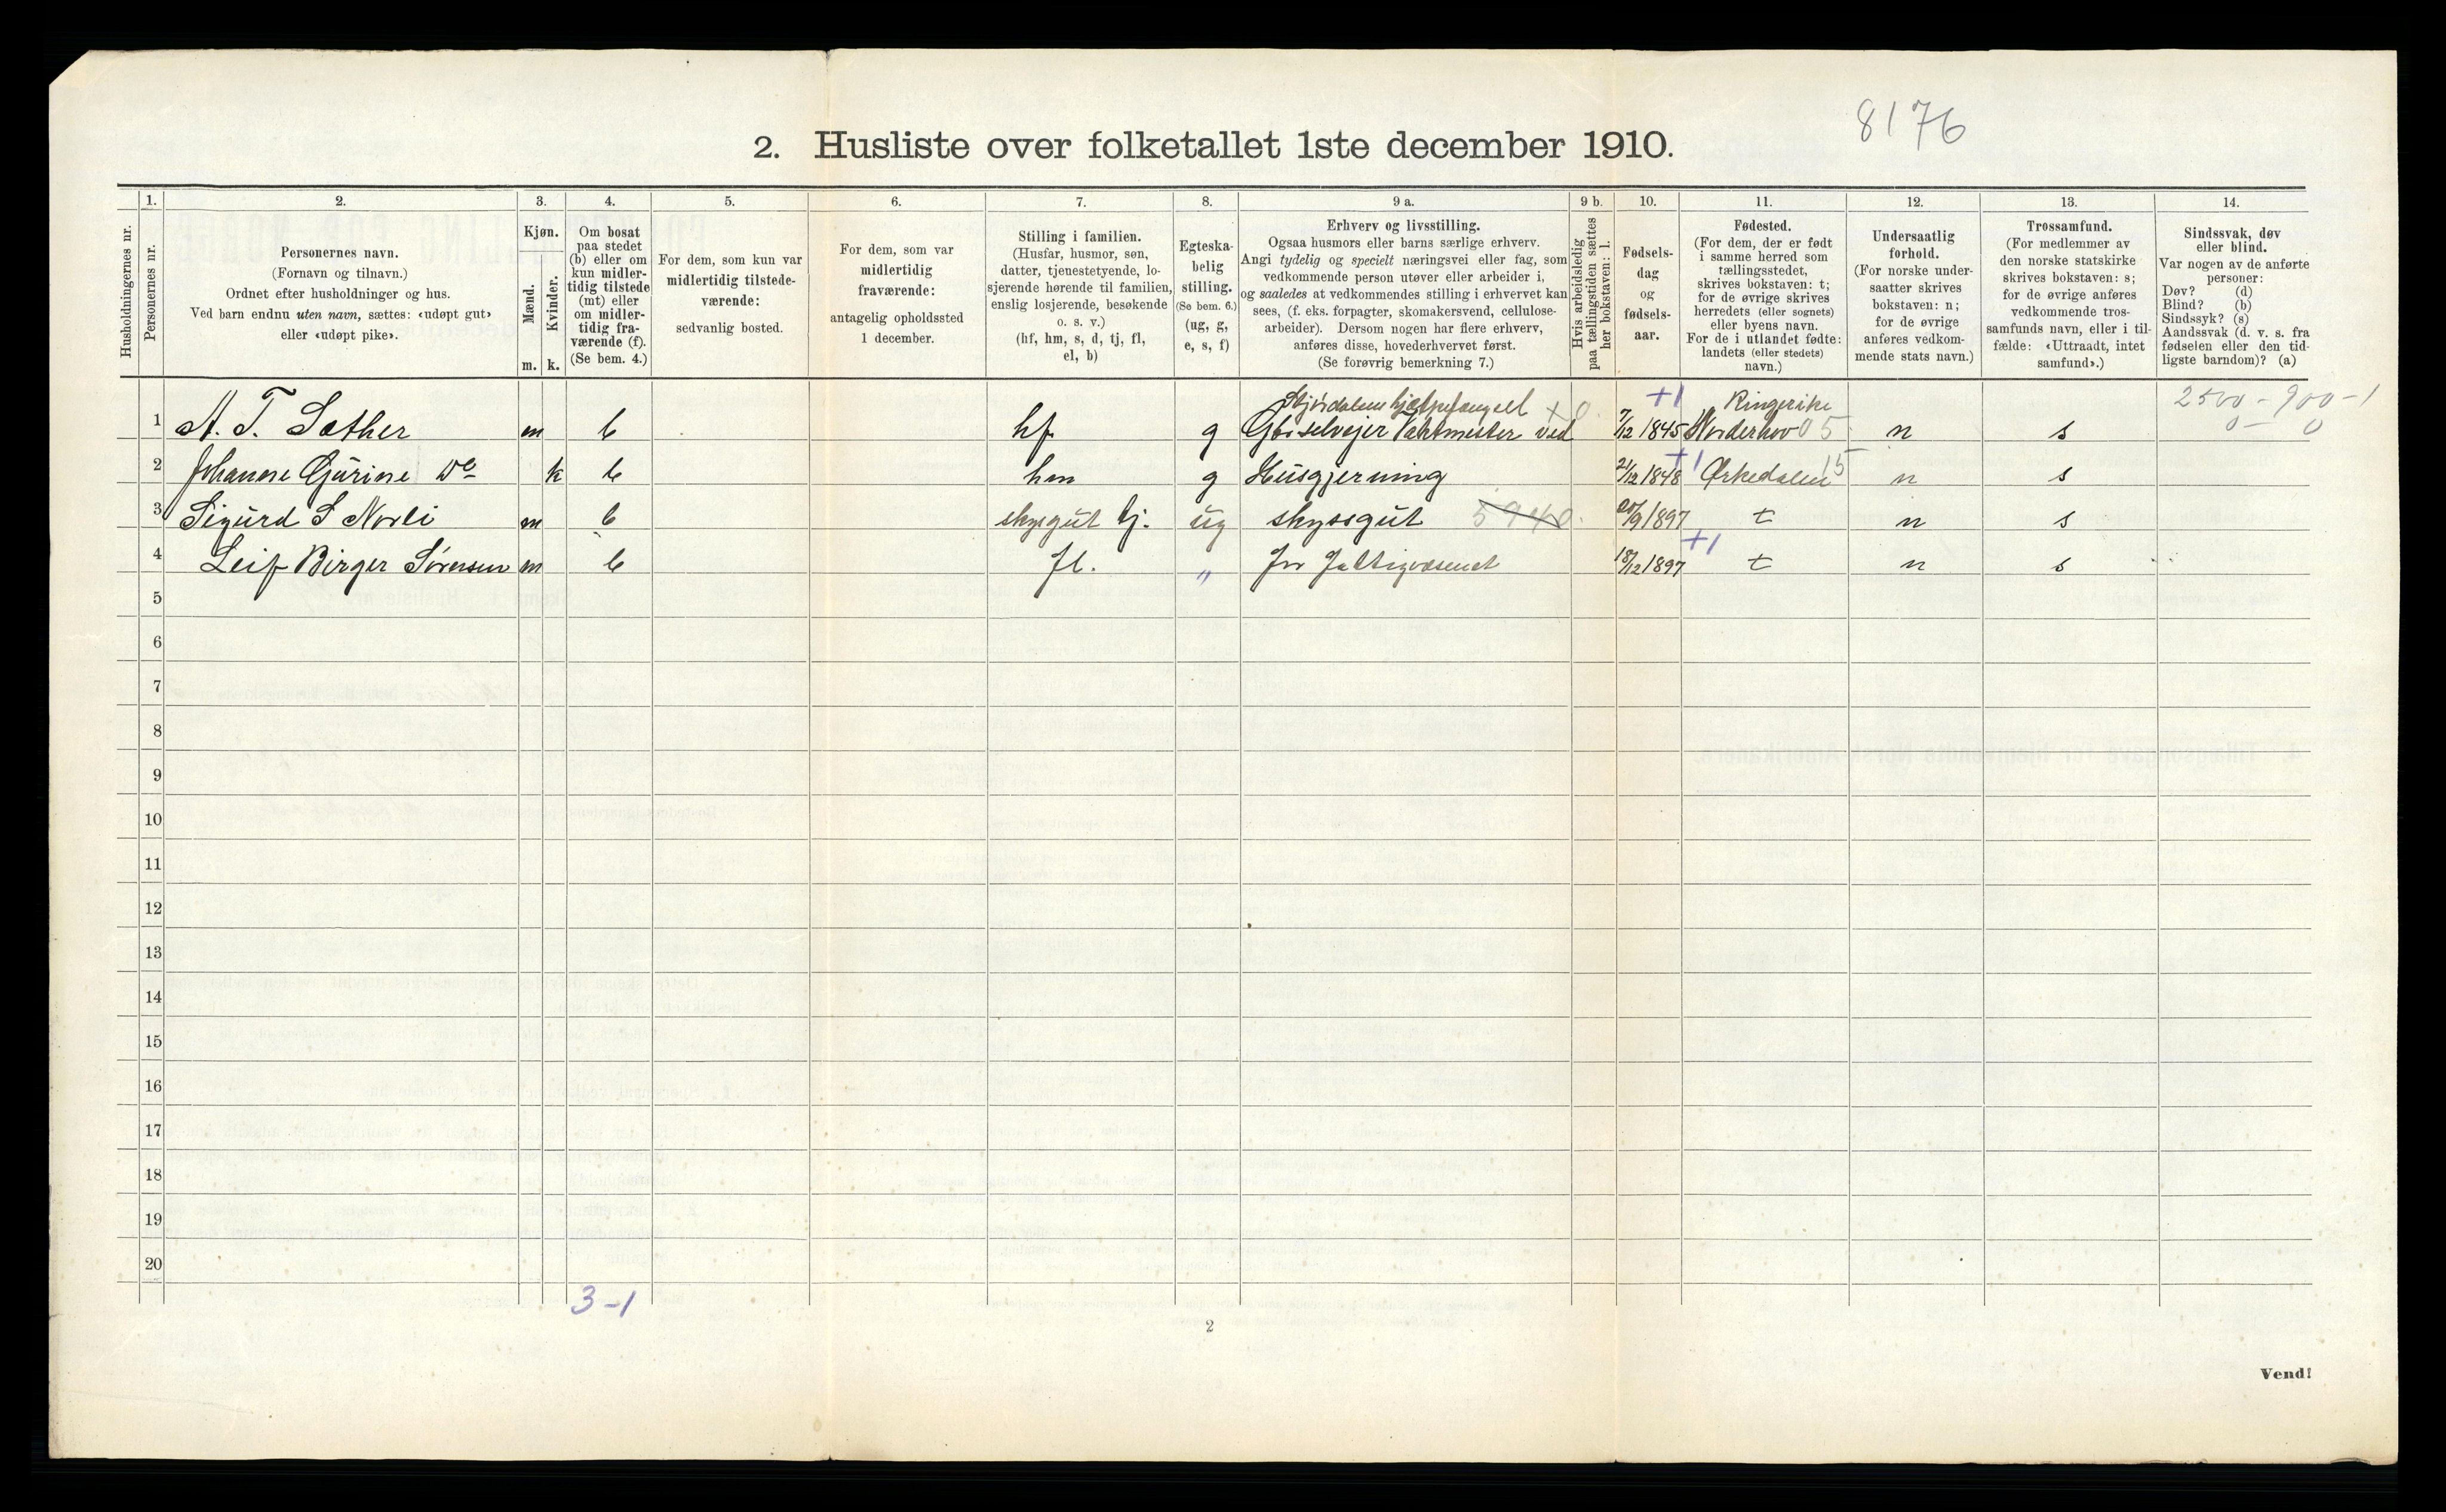 8176
2. Husliste over folketallet 1ste december 1910.
Husholdningernes nr.
1.
Personernes nr.
2.
Personernes navn.
(Fornavn og tilnavn.)
Ordnet efter husholdninger og hus.
Ved barn endnu uten navn, sættes: «udøpt gut»
eller «udøpt pike».
3.
Kjøn.
Mænd.
m.
Kvinder.
k.
4.
Om bosat
paa stedet
(b) eller om
kun midler-
tidig tilstede
(mt) eller
om midler-
tidig fra-
værende (f).
(Se bem. 4.)
5.
For dem, som kun var
midlertidig tilstede-
værende:
sedvanlig bosted.
6.
For dem, som var
midlertidig
fraværende:
antagelig opholdssted
1 december.
7.
Stilling i familien.
(Husfar, husmor, søn,
datter, tjenestetyende, lo-
sjerende hørende til familien,
enslig losjerende, besøkende
o. s. v.)
(hf, hm, s, d, tj, fl,
el, b)
8.
Egteska-
belig
stilling.
(Se bem. 6.)
(ug, g,
e, s, f)
9 a.
Erhverv og livsstilling.
Ogsaa husmors eller barns særlige erhverv.
Angi tydelig og specielt næringsvei eller fag, som
vedkommende person utøver eller arbeider i,
og saaledes at vedkommendes stilling i erhvervet kan
sees, (f. eks. forpagter, skomakersvend, cellulose-
arbeider). Dersom nogen har flere erhverv,
anføres disse, hovederhvervet først.
(Se forøvrig bemerkning 7.)
9 b.
Hvis arbeidsledig
paa tællingstiden sættes
her bokstaven: l.
10.
Fødsels-
dag
og
fødsels-
aar.
11.
Fødested.
(For dem, der er født
i samme herred som
tællingsstedet,
skrives bokstaven: t;
for de øvrige skrives
herredets (eller sognets)
eller byens navn.
For de i utlandet fødte:
landets (eller stedets)
navn.)
12.
Undersaatlig
forhold.
(For norske under-
saatter skrives
bokstaven: n;
for de øvrige
anføres vedkom-
mende stats navn.)
13.
Trossamfund.
(For medlemmer av
den norske statskirke
skrives bokstaven: s;
for de øvrige anføres
vedkommende tros-
samfunds navn, eller i til-
fælde: «Uttraadt, intet
samfund».)
14.
Sindssvak, døv
eller blind.
Var nogen av de anførte
personer:
Døv? (d)
Blind? (b)
Sindssyk? (s)
Aandssvak (d. v. s. fra
fødselen eller den tid-
ligste barndom)? (a)
Stjørdalens hjælpefængsel +0 +1 Ringerike 2500 - 900 - 1
1 A. T. Sæther m b hf g Gbr selveier Vaktmester ved 7/12 1845 Norderhov 05 n s 0 - 0
2 Johanne Gurine do k b hm g Husgjerning 21/12 1848 +1 Ørkedalen 15 n s
3 Sigurd S Norli m b skysgut tj. ug skyssgut 5940 20/9 1897 t n s
4 Leif Birger Sørensen m b fl. " For Fattigvæsenet 18/12 1897 +1 t n s
5
6
7
8
9
10
11
12
13
14
15
16
17
18
19
20
3-1
2
Vend!